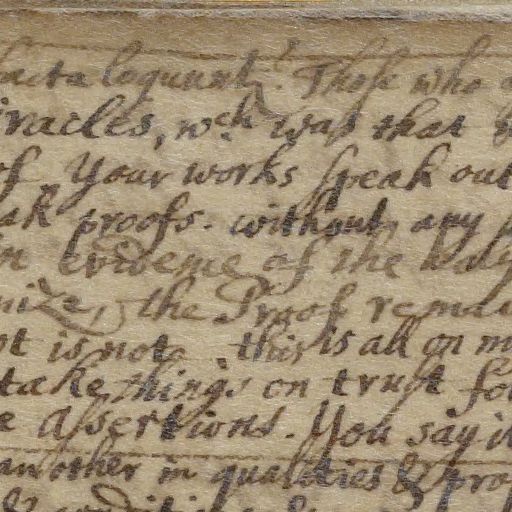 facta loquuntr. Those who
iracles, wch was that
of. Your works speak out
ak proofs. without any
evidence of the
mize, the Proof remai
pt is not, this is all on m
take things on trust fo
e assertions. You say it
another in qualities & pro